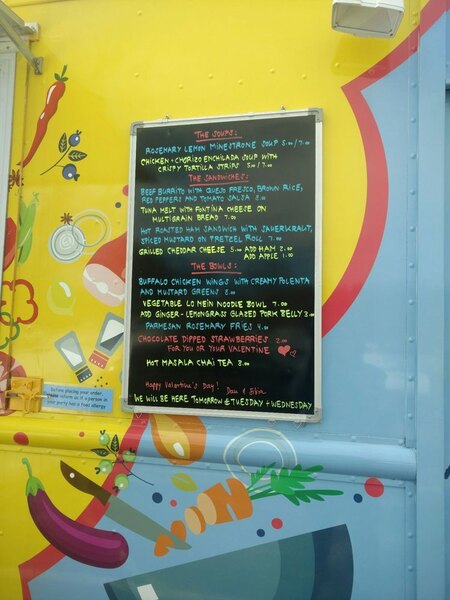 THE SOUPS:
ROSEMARY LEMON MINESTRONE SOUP 5.00 / 7.00
CHICKEN + CHORIZO ENCHILADA SOUP WITH
CRISPY TORTILLA STRIPS 5.00 / 7.00
THE SANDWICHES:
BEEF BURRITO WITH QUESO FRESCO, BROWN RICE,
RED PEPPERS AND TOMATO SALSA 8.00
TUNA MELT WITH FONTINA CHEESE ON
MULTIGRAIN BREAD 7.00
HOT ROASTED HAM SANDWICH WITH SAUERKRAUT,
SPICED MUSTARD ON PRETZEL ROLL 7.00
GRILLED CHEDDAR CHEESE 5.00 ADD HAM 2.00
ADD APPLE 1.00
THE BOWLS:
BUFFALO CHICKEN WINGS WITH CREAMY POLENTA
AND MUSTARD GREENS 8.00
VEGETABLE LO MEIN NOODLE BOWL 7.00
ADD GINGER-LEMONGRASS GLAZED PORK BELLY 3.00
PARMESAN ROSEMARY FRIES 4.00
CHOCOLATE DIPPED STRAWBERRIES 2.00
FOR YOU OR YOUR VALENTINE
HOT MASALA CHAI TEA 3.00
Happy Valentine's Day!
WE WILL BE HERE TOMORROW & TUESDAY + WEDNESDAY
Before placing your order,
please inform us if a person in
your party has a food allergy